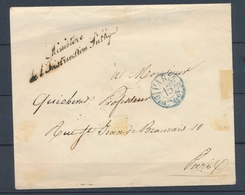 Ministère
de l'Instruction Publiq
PARIS
15
à Monsieur
Quicherat Professeur
Rue St Jean de Beauvais 10
Paris